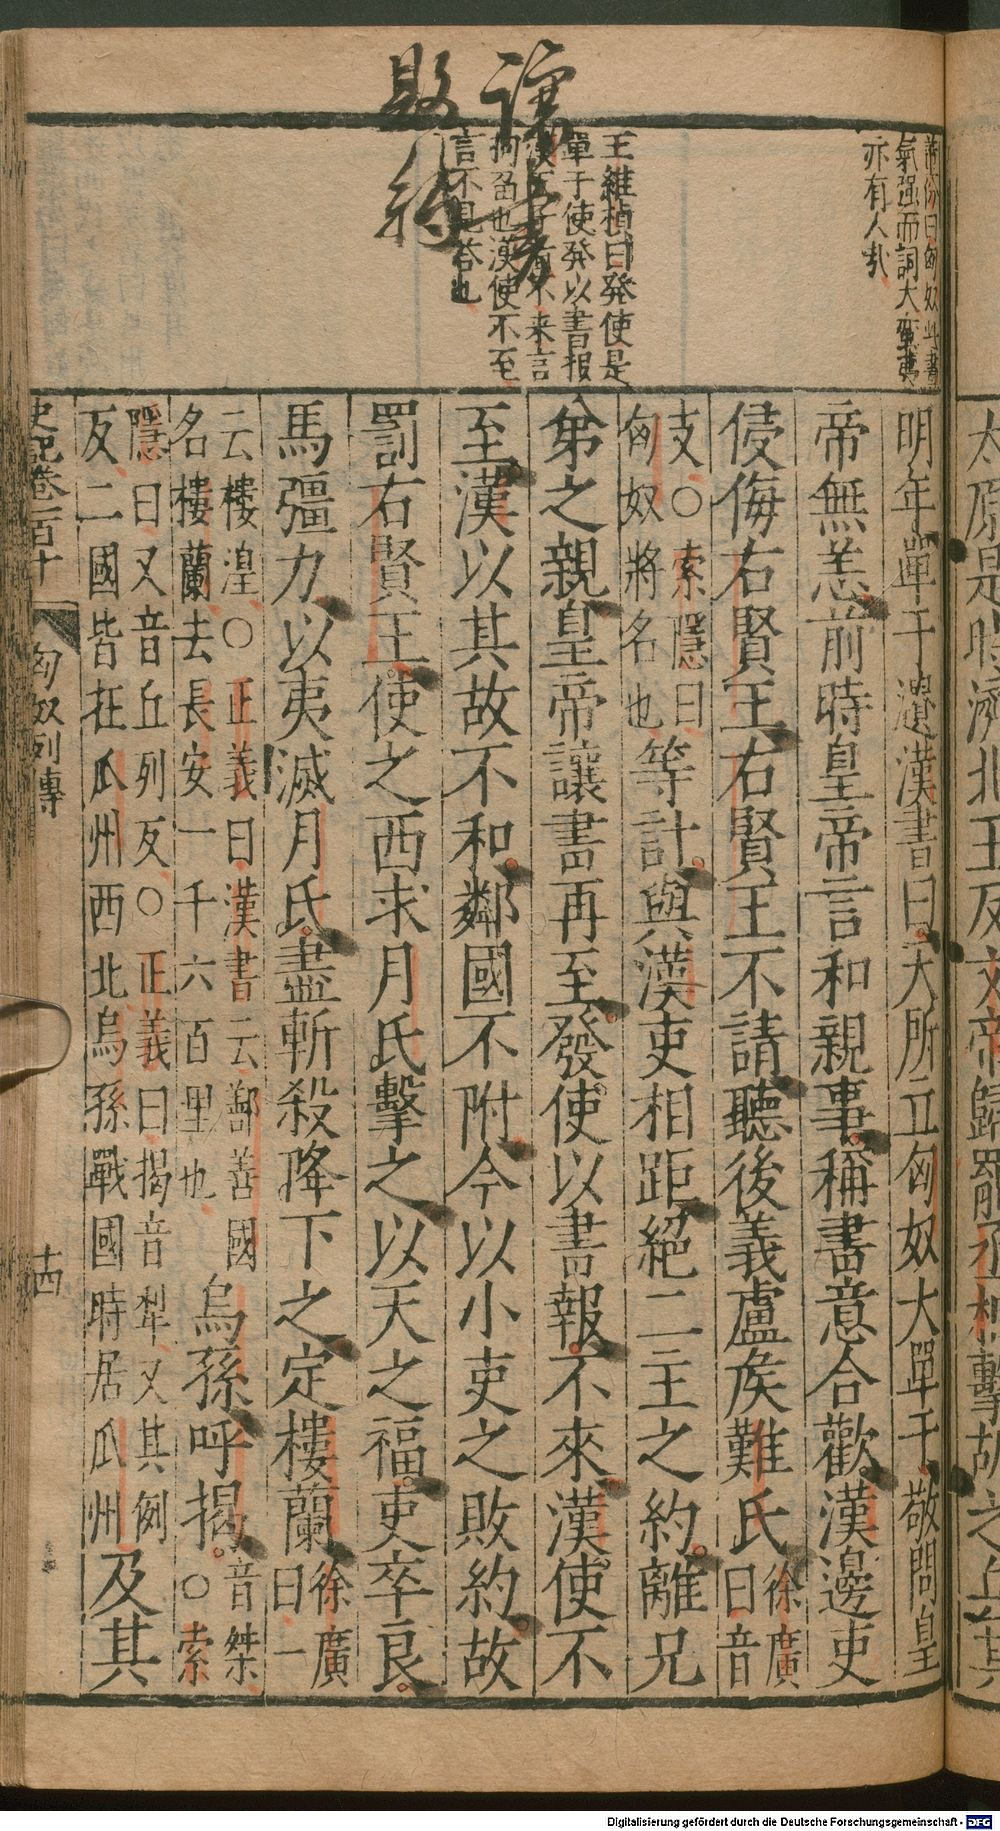 讓書
敗約
茅坤曰匈奴此書
氣强而詞大蠻夷
亦有人㢤
王維楨曰發使是
單于使發以書报
不来言
也漢使不至
言不見答也
太原是時濟北王反文帝歸罷丞相擊胡之兵其
明年單于遺漢書曰天所立匈奴大單于敬問皇
帝無恙前時皇帝言和親事稱書意合歡漢邊吏
侵侮右賢王右賢王不請聽後義盧矦難氏徐廣曰音
支○索隱曰匈奴將名也等計與漢吏相距絕二主之約離兄
弟之親皇帝讓書再至發使以書報不來漢使不
至漢以其故不和鄰國不附今以小吏之敗約故
罰右賢王使之西求月氏擊之以天之福吏卒良
馬彊力以夷滅月氏盡斬殺降下之定樓蘭徐廣曰一
云樓湟○正義曰漢書云鄯善國名樓蘭去長安一千六百里也烏孫呼揭音桀○索
隱曰又音丘列反○正義曰揭音犁又其例反二國皆在瓜州西北烏孫戰國時居瓜州及其
史記卷一百十 匈奴列傳 十四
Digitalisierung gefördert durch die Deutsche Forschungsgemeinschaft - DFG